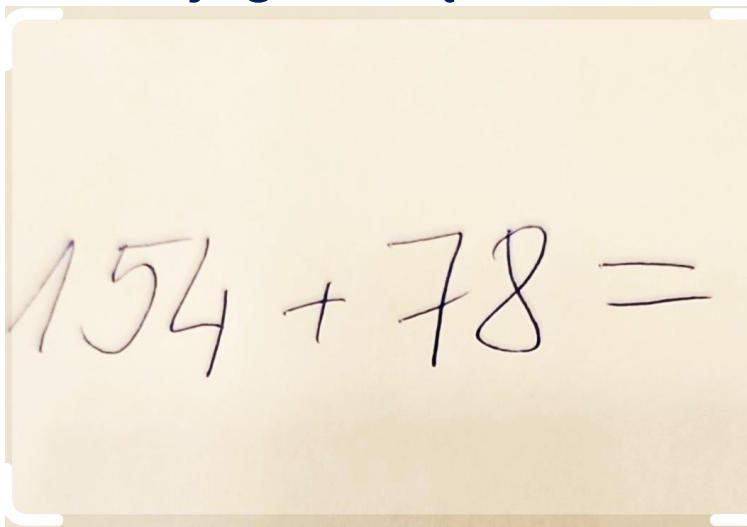 154 + 78 =